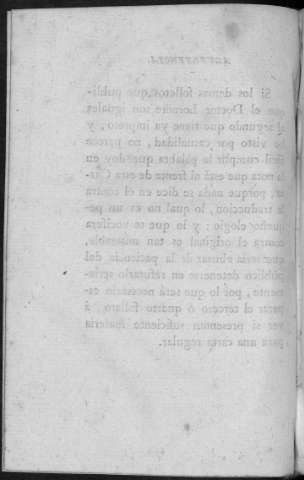 ADVERTENCIA.
Si los demas folletos, que publi-
que el Doctor Lorente son iguales
al segundo que tiene ya impreso, y
he visto por casualidad, no parece
facil cumplir la palabra que doy en
la nota que está al frente de esta Car-
ta, porque nada se dice en el contra
la traduccion, lo qual no es un pe-
queño elogio; y lo que se vocifera
contra el original es tan miserable,
que seria abusar de la paciencia del
público detenerse en refutarlo seria-
mente, por lo que será necesario es-
perar el tercero ó quarto folleto, á
ver si presentan suficiente materia
para una carta regular.